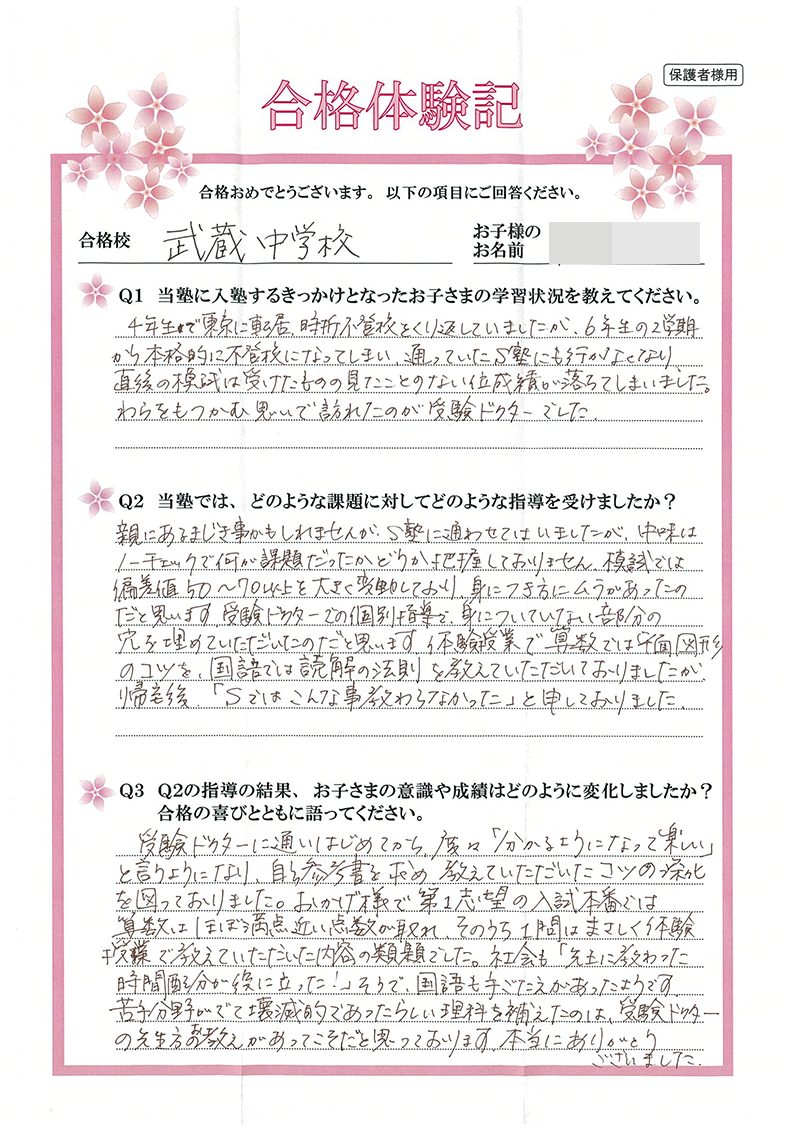 保護者様用
合格体験記
合格おめでとうございます。以下の項目にご回答ください。
合格校 武蔵中学校
お子様の
お名前
Q1 当塾に入塾するきっかけとなったお子さまの学習状況を教えてください。
4年生で東京に転居、時折不登校をくり返していましたが、6年生の2学期
から本格的に不登校になってしまい、通っていたS塾にも行かなくなり
直後の模試は受けたものの見たことのない位成績が落ちてしまいました。
わらをもつかむ思いで訪れたのが受験ドクターでした。
Q2 当塾では、どのような課題に対してどのような指導を受けましたか？
親にあるまじき事かもしれませんが、S塾に通わせてはいましたが、中味は
ノーチェックで何が課題だったかどうか把握しておりません。模試では
偏差値50〜70以上を大きく変動しており、身につき方にムラがあったの
だと思います。受験ドクターでの個別指導で、身についていない部分の
穴を埋めていただいたのだと思います。体験授業で算数では平面図形
のコツを、国語では読解の法則を教えていただいておりましたが、
帰宅後、「Sではこんな事教わらなかった」と申しておりました。
Q3 Q2の指導の結果、お子さまの意識や成績はどのように変化しましたか？
合格の喜びとともに語ってください。
受験ドクターに通いはじめてから、度々「分かるようになって楽しい」
と言うようになり、自ら参考書を求め、教えていただいたコツの深化
を図っておりました。おかげ様で第1志望の入試本番では
算数はほぼ満点近い点数が取れ、そのうち1問はまさしく体験
授業で教えていただいた内容の類題でした。社会も「先生に教わった
時間配分が役に立った！」そうで、国語も手ごたえがあったようです。
苦手分野がでて壊滅的であったらしい理科を補えたのは、受験ドクター
の先生方のお教えがあってこそだと思っております。本当にありがとう
ございました。